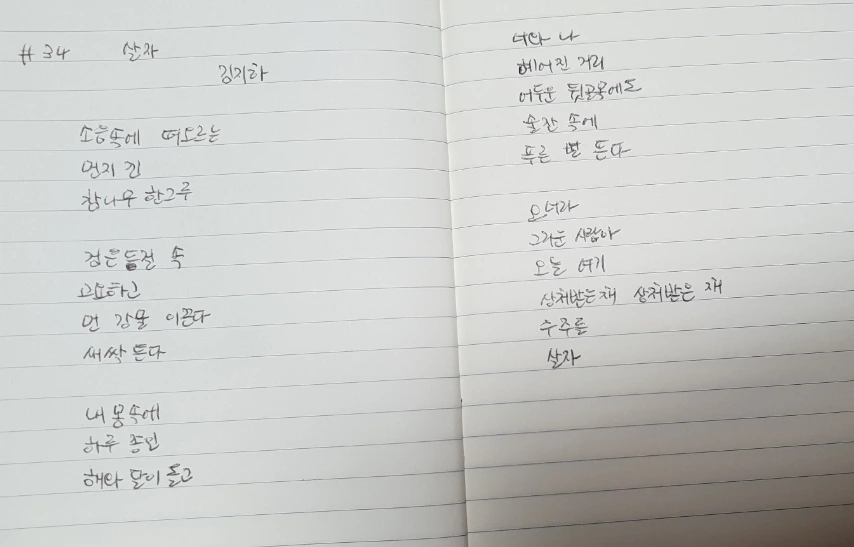 #34 살자
김지하
소음속에 떠오르는
먼지 낀
참나무 한그루
검은등걸 속
고요하고
먼 강물 이끈다
새싹 튼다
내 몸속에
하루 종일
해와 달이 돌고
너와 나
헤어진 거리
어두운 뒷골목에도
술잔 속에
푸른 별 뜬다
오너라
그리운 사람아
오늘 여기
상처받는채 상처받은 채
수주를
살자